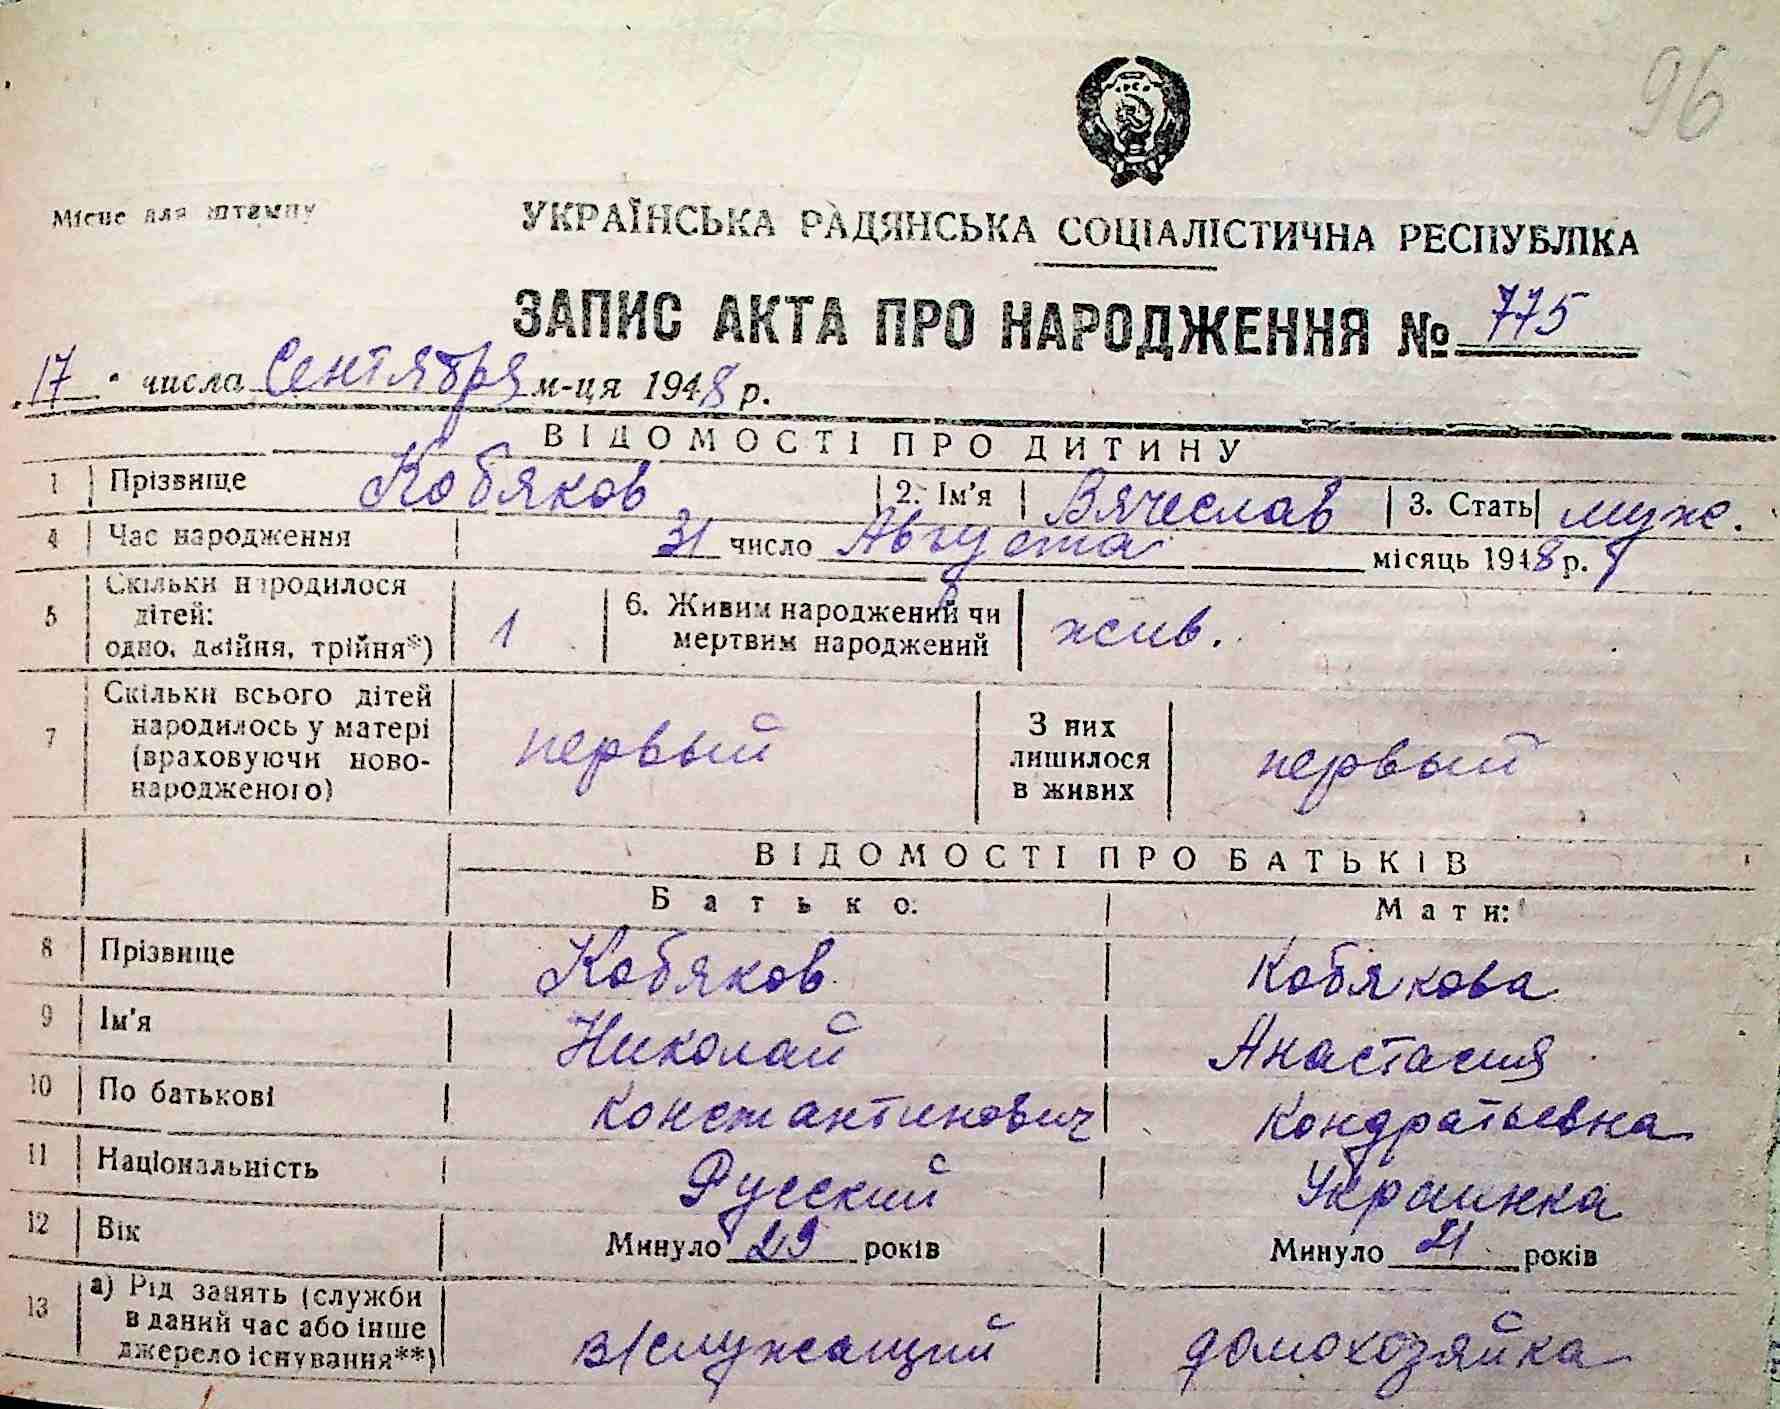 96
Місце для штампу
УКРАЇНСЬКА РАДЯНСЬКА СОЦІАЛІСТИЧНА РЕСПУБЛІКА
ЗАПИС АКТА ПРО НАРОДЖЕННЯ № 775
17 числа Сентября м-ця 1948 р.
ВІДОМОСТІ ПРО ДИТИНУ
1 Прізвище Кобяков 2. Ім'я Вячеслав 3. Стать муж.
4 Час народження 31 число Августа місяць 1948 р.
5 Скільки народилося дітей: одно, двійня, трійня*) 1 6. Живим народжений чи мертвим народжений жив.
7 Скільки всього дітей народилось у матері (враховуючи новонародженого) первый З них лишилося в живих первый
ВІДОМОСТІ ПРО БАТЬКІВ
Батько: Мати:
8 Прізвище Кобяков Кобякова
9 Ім'я Николай Анастасия
10 По батькові Константинович Кондратьевна
11 Національність Русский Украинка
12 Вік Минуло 29 років Минуло 21 років
13 а) Рід занять (служби в даний час або інше джерело існування**) в/служащий домохозяйка